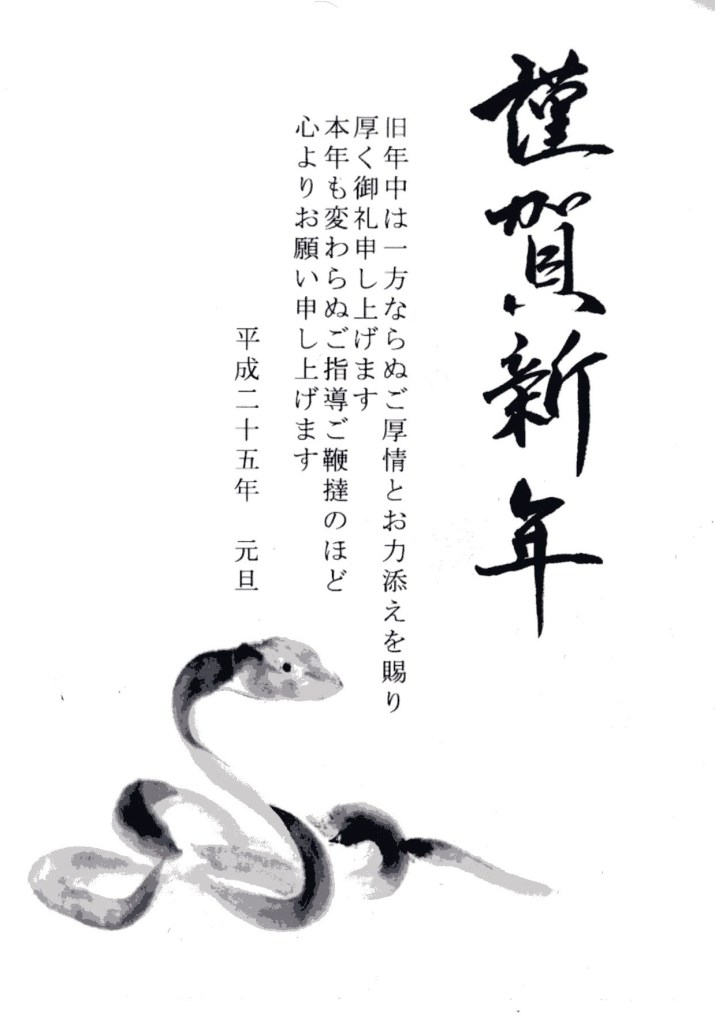 謹賀新年
旧年中は一方ならぬご厚情とお力添えを賜り
厚く御礼申し上げます
本年も変わらぬご指導ご鞭撻のほど
心よりお願い申し上げます
平成二十五年　元旦